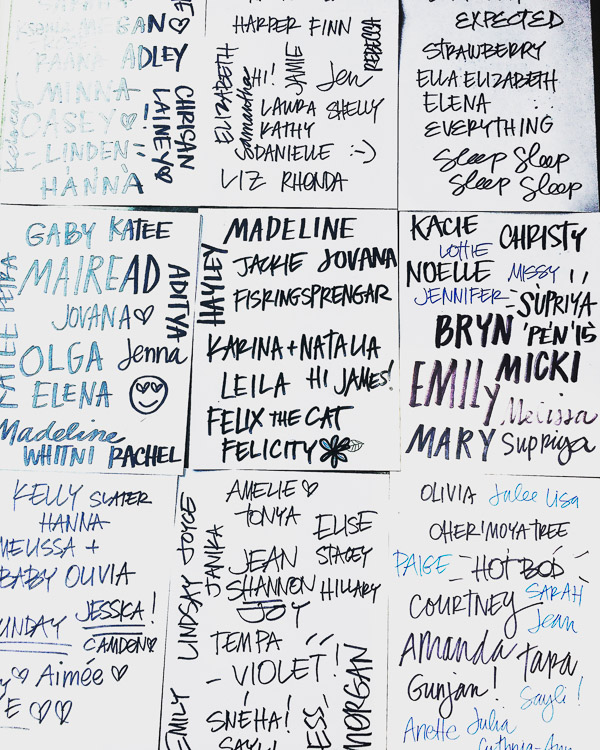 SAN♡
ADLEY
MINNA
CASEY♡
LINDEN
HANNA
CHRISAN
LAINEY!
Kelsey
HARPER FINN
REBECCA
ELIZABETH
Samantha
HI!
JAMIE
Jen
LAURA SHELLY
KATHY
DANIELLE :-)
LIZ RHONDA
EXPECTED
STRAWBERRY
ELLA ELIZABETH
ELENA
EVERYTHING
Sleep Sleep
Sleep Sleep
GABY KATEE
MAIREAD
ADITYA
JOVANA♡
OLGA Jenna
ELENA
Madeline
WHITNI RACHEL
MADELINE
HAYLEY
JACKIE JOVANA
FISRINGSPRENGAR
KARINA + NATALIA
LEILA HI JAMES!
FELIX THE CAT
FELICITY
KACIE CHRISTY
LOTTIE
NOELLE MISSY
JENNIFER SUPRIYA
BRYN 'PEN'15
EMILY MICKI
Melissa
MARY Suppriya
KELLY SLATER
HANNA
MELISSA +
BABY OLIVIA
JESSICA!
UNDAY
CAMDEN♡
♡ Aimée ♡
E ♡♡
JOYCE
LINDSAY
JANIKA
EMILY
AMELIE ♡
TONYA
ELISE
JEAN STACEY
SHANNON HILLARY
JOY
TEMPA
- VIOLET!
SNEHA!
MORGAN
OLIVIA Julee Lisa
OHER'MOYATREE
PAIGE HOT BOD
SARAH
COURTNEY
Jean
Amanda Tara
Gunjan! Sayli!
Anette Julia